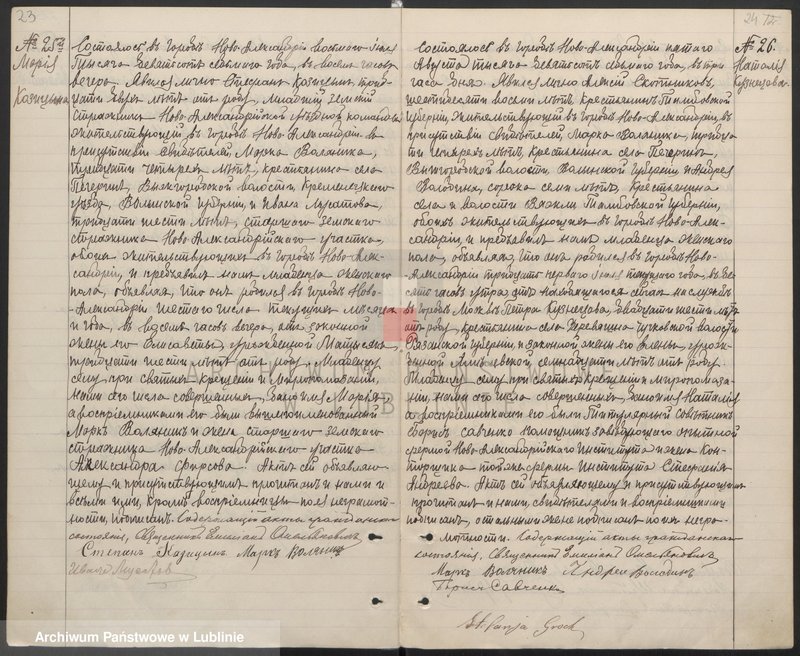 23
№ 25й
Марія
Казицына
Состоялось въ городѣ Ново-Александріи восьмого Іюля
тысяча девятисотъ седьмого года, въ восемь часовъ
вечера. Явился лично Степанъ Казицынъ, трид-
цати двухъ лѣтъ отъ роду, младшій земскій
стражникъ Ново-Александрійской уѣздной команды
жительствующій въ городѣ Ново-Александріи въ
присутствіи свидѣтелей, Марка Валяника,
тридцати четырехъ лѣтъ, крестьянина села
Печерне, Вышгородской волости, Кременецкаго
уѣзда, Волынской губерніи, и Ивана
тридцати шести лѣтъ, старшаго земскаго
стражника Ново-Александрійскаго участка,
обоихъ жительствующихъ въ городѣ Ново-Алек-
сандріи, и предъявилъ намъ младенца женскаго
пола, объявляя, что онъ родился въ городѣ Ново-
Александріи шестого числа текущаго мѣсяца
и года, въ восемь часовъ вечера, отъ законной
жены его Елисаветы, урожденной
тридцати шести лѣтъ отъ роду. Младенцу
сему, при святомъ Крещеніи и Мѵропомазаніи,
нами сего числа совершенномъ, дано имя Марія,
а воспріемниками его были вышепоименованный
Маркъ Валяникъ и жена старшаго земскаго
стражника Ново-Александрійскаго участка
Александра Фирсова. Актъ сей объявляю-
щему и присутствующимъ прочитанъ и нами и
всѣми ими, кромѣ воспріемницы по ея неграмот-
ности, подписанъ. Содержащій акты гражданскаго
состоянія, Священникъ
Степанъ Казицинъ Маркъ Валяник
Иванъ
24
№ 26.
Наталія
Кузнецова.
Состоялось въ городѣ Ново-Александріи пятаго
Августа тысяча девятисотъ седьмого года, въ три
часа дня. Явился лично Алексій Скотниковъ,
шестидесяти восьми лѣтъ, крестьянинъ Тамбовской
губерніи, жительствующій въ городѣ Ново-Александріи, въ
присутствіи свидѣтелей, Марка Валяника, тридца-
ти четырехъ лѣтъ, крестьянина села Печерне,
Вышгородской волости, Волынской губерніи и Андрея
Володина, сорока семи лѣтъ, крестьянина
села и волости Тамбовской губерніи,
обоихъ жительствующихъ въ городѣ Ново-Алек-
сандріи, и предъявилъ намъ младенца женскаго
пола, объявляя, что онъ родился въ городѣ Ново-
Александріи тридцать перваго Іюля текущаго года, въ де-
сять часовъ утра, отъ находящагося сейчас на службѣ
въ городѣ Петра Кузнецова, двадцати шести лѣтъ
отъ роду, крестьянина села волости
Рязанской губерніи, и законной жены его Елены, урож-
денной семнадцати лѣтъ отъ роду.
Младенцу сему, при святомъ Крещеніи и Мѵропомаза-
ніи, нами сего числа совершенномъ, дано имя Наталія
а воспріемниками его были Титулярный Совѣтникъ
Борисъ Савченко помощникъ завѣдующаго опытной
фермой Ново-Александрійскаго Института и жена Кон-
торщика той же фермы Института Стефанія
Андреева. Актъ сей объявляющему и присутствующимъ
прочитанъ и нами, свидѣтелями и воспріемниками
подписанъ, остальными же не подписанъ по ихъ негра-
мотности. Содержащій акты гражданскаго
состоянія, Священникъ
Маркъ Валяникъ Андрей Володинъ
Борисъ Савченко
St. Grock
Archiwum Państwowe w Lublinie